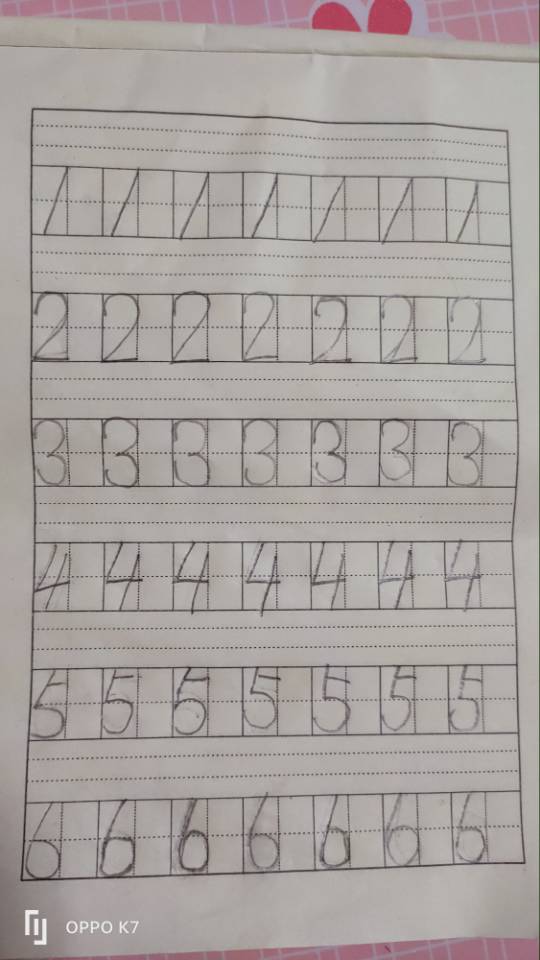 1 1 1 1 1 1 1
2 2 2 2 2 2 2
3 3 3 3 3 3 3
4 4 4 4 4 4 4
5 5 5 5 5 5 5
6 6 6 6 6 6 6
OPPO K7